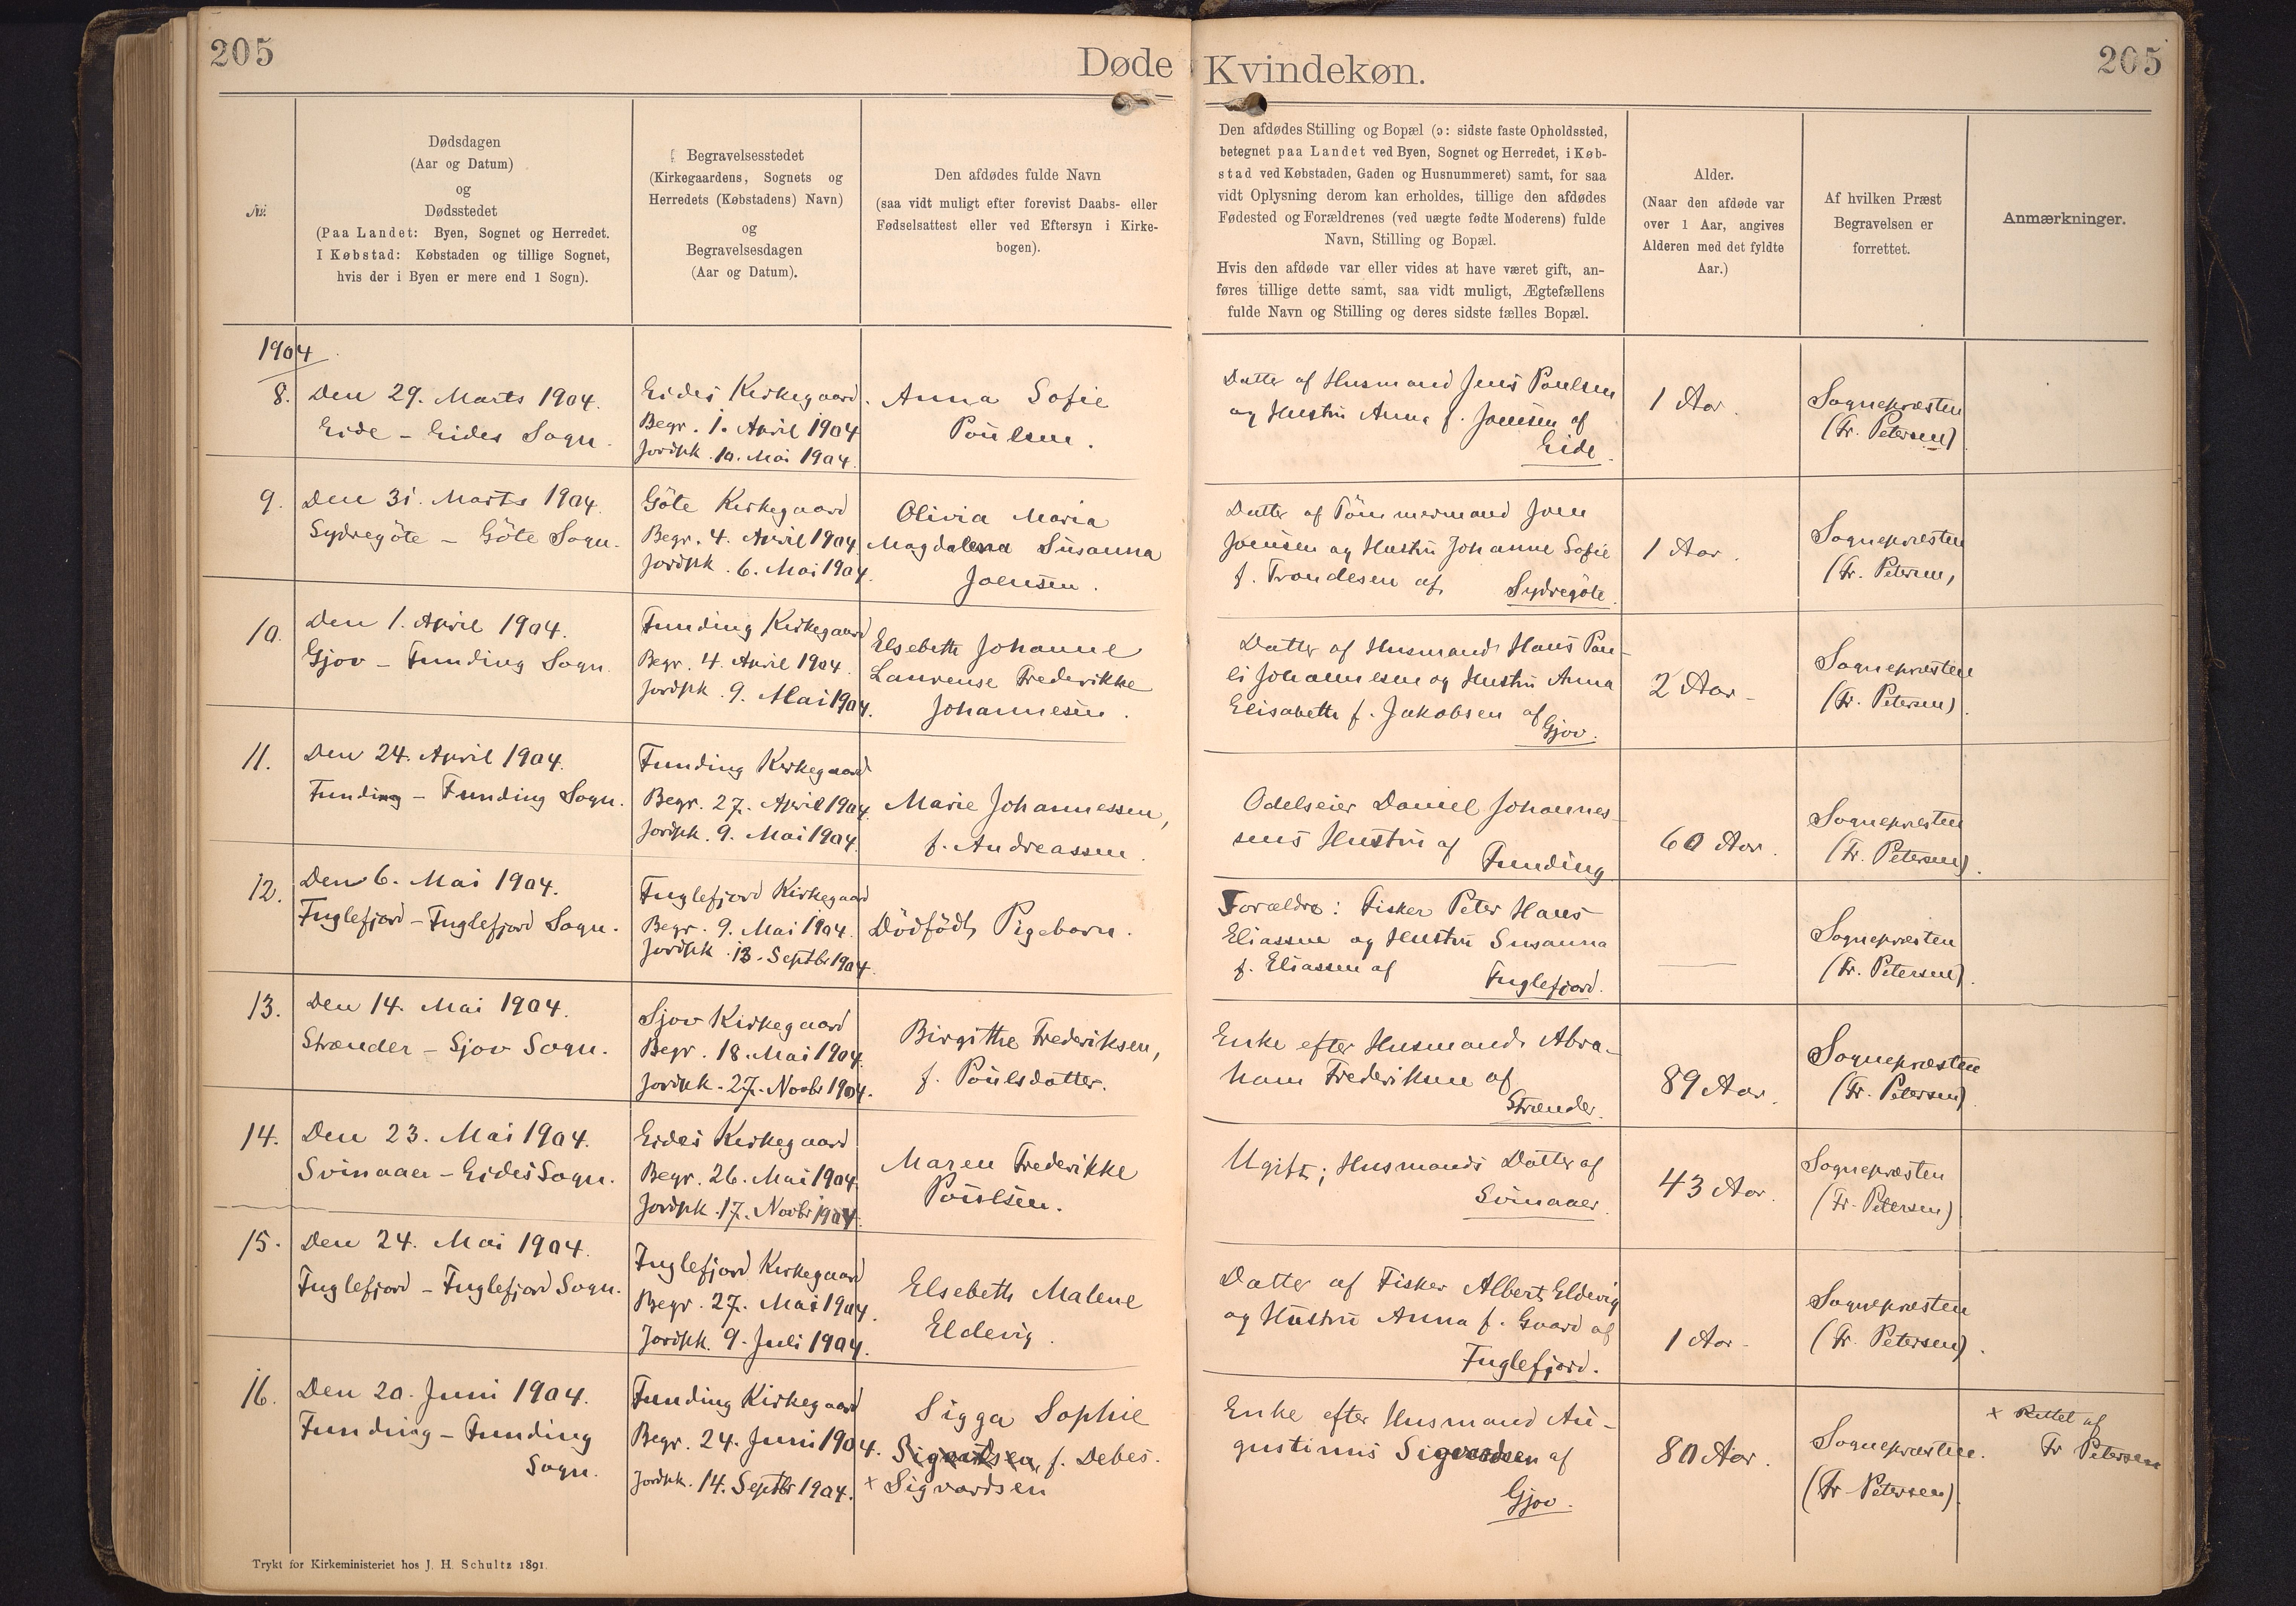 205
Døde
Kvindekøn.
205
№.
Dødsdagen
(Aar og Datum)
og
Dødsstedet
(Paa Landet: Byen, Sognet og Herredet.
I Købstad: Købstaden og tillige Sognet,
hvis der i Byen er mere end 1 Sogn).
Begravelsesstedet
(Kirkegaardens, Sognets og
Herredets (Købstadens) Navn)
og
Begravelsesdagen
(Aar og Datum).
Den afdødes fulde Navn
(saa vidt muligt efter forevist Daabs- eller
Fødselsattest eller ved Eftersyn i Kirke-
bogen).
Den afdødes Stilling og Bopæl (ɔ: sidste faste Opholdssted,
betegnet paa Landet ved Byen, Sognet og Herredet, i Køb-
stad ved Købstaden, Gaden og Husnummeret) samt, for saa
vidt Oplysning derom kan erholdes, tillige den afdødes
Fødested og Forældrenes (ved uægte fødte Moderens) fulde
Navn, Stilling og Bopæl.
Hvis den afdøde var eller vides at have været gift, an-
føres tillige dette samt, saa vidt muligt, Ægtefællens
fulde Navn og Stilling og deres sidste fælles Bopæl.
Alder.
(Naar den afdøde var
over 1 Aar, angives
Alderen med det fyldte
Aar.)
Af hvilken Præst
Begravelsen er
forrettet.
Anmærkninger.
1904
8.
Den 29. Marts 1904.
Eide - Eides Sogn.
Eides Kirkegaard.
Begr. 1. April 1904
Jordpk. 10. Mai 1904.
Anna Sofie
Poulsen.
Datter af Husmand Jens Poulsen
og Hustru Anna f. Joensen af
Eide.
1 Aar.
Sognepræsten
(Fr. Petersen)
9.
Den 31. Marts 1904.
Sydregöte - Göte Sogn.
Göte Kirkegaard
Begr. 4. April 1904
Jordpk. 6. Mai 1904.
Olivia Maria
Magdalena Susanna
Joensen.
Datter af Tömmermand Joen
Joensen og Hustru Johanne Sofie
f. Trondesen af Sydregöte.
1 Aar.
Sognepræsten
(Fr. Petersen,
10.
Den 1. April 1904.
Gjov - Funding Sogn.
Funding Kirkegaard
Begr. 4. April 1904.
Jordpk. 9. Mai 1904.
Elsebeth Johanne
Laurense Frederikke
Johannesen.
Datter af Husmand Hans Pau-
li Johannesen og Hustru Anna
Elisabeth f. Jakobsen af
Gjov.
2 Aar -
Sognepræsten
(Fr. Petersen).
11.
Den 24. April 1904.
Funding - Funding Sogn.
Funding Kirkegaard
Begr. 27. April 1904.
Jordpk. 9. Mai 1904.
Marie Johannessen,
f. Andreassen.
Odelseier Daniel Johannes-
sens Hustru af
Funding
60 Aar.
Sognepræsten
(Fr. Petersen).
12.
Den 6. Mai 1904.
Fuglefjord - Fuglefjord Sogn.
Fuglefjord Kirkegaard
Begr. 9. Mai 1904.
Jordpk. 13. Septbr 1904.
Dödfödt Pigebarn.
Forældre: Fisker Peter Hans
Eliassen og Hustru Susanna
f. Eliassen af
Fuglefjord.
—
Sognepræsten
(Fr. Petersen).
13.
Den 14. Mai 1904.
Strænder - Sjov Sogn.
Sjov Kirkegaard
Begr. 18. Mai 1904.
Jordpk. 27. Novbr 1904.
Birgithe Frederiksen,
f. Poulsdatter.
Enke efter Husmand Abra-
ham Frederiksen af
Strænder.
89 Aar.
Sognepræsten
(Fr. Petersen)
14.
Den 23. Mai 1904.
Svinaaer - Eides Sogn.
Eides Kirkegaard
Begr. 26. Mai 1904.
Jordpk. 17. Novbr 1904.
Maren Frederikke
Poulsen.
Ugift; Husmands Datter af
Svinaaer.
43 Aar.
Sognepræsten
(Fr. Petersen).
15.
Den 24. Mai 1904.
Fuglefjord - Fuglefjord Sogn.
Fuglefjord Kirkegaard
Begr. 27. Mai 1904.
Jordpk. 9. Juli 1904.
Elsebeth Malene
Eldevig.
Datter af Fisker Albert Eldevig
og Hustru Anna f. Gaard af
Fuglefjord.
1 Aar -
Sognepræsten
(Fr. Petersen).
16.
Den 20. Juni 1904.
Funding - Funding
Sogn.
Funding Kirkegaard
Begr. 24. Juni 1904.
Jordpk. 14. Septbr 1904.
Sigga Sophie
Sigvartsen, f. Debes.
x Sigvardsen
Enke efter Husmand Au-
gustinus Sigvardsen af
Gjov.
80 Aar.
Sognepræsten.
(Fr. Petersen).
x Rettet af
Fr Petersen
Trykt for Kirkeministeriet hos J. H. Schultz 1891.